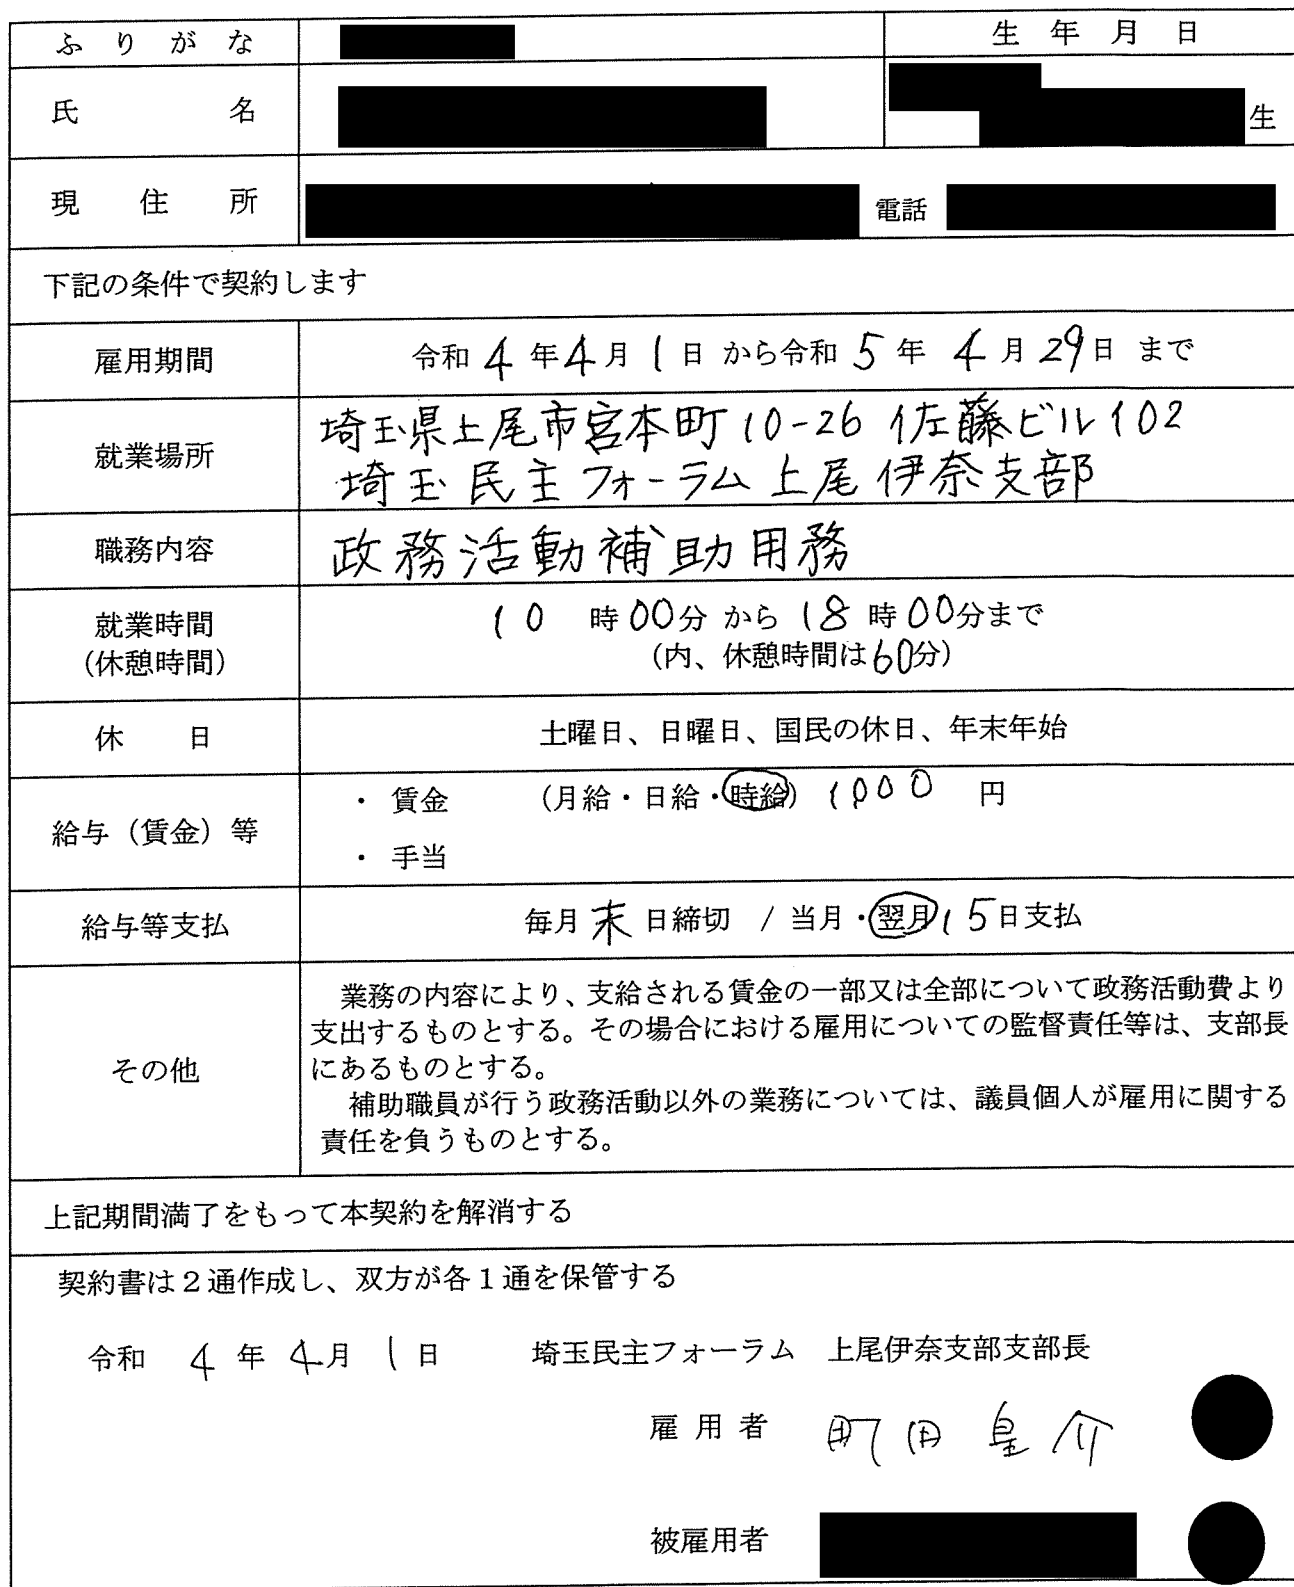 ふりがな
生年月日
氏名
生
現住所
電話
下記の条件で契約します
雇用期間
令和4年4月1日から令和5年4月29日まで
就業場所
埼玉県上尾市宮本町10-26 佐藤ビル102
埼玉民主フォーラム上尾伊奈支部
職務内容
政務活動補助用務
就業時間
(休憩時間)
10時00分から18時00分まで
(内、休憩時間は60分)
休日
土曜日、日曜日、国民の休日、年末年始
給与（賃金）等
・賃金 (月給・日給・時給) 1000 円
・手当
給与等支払
毎月末日締切 / 当月・翌月15日支払
その他
業務の内容により、支給される賃金の一部又は全部について政務活動費より
支出するものとする。その場合における雇用についての監督責任等は、支部長
にあるものとする。
補助職員が行う政務活動以外の業務については、議員個人が雇用に関する
責任を負うものとする。
上記期間満了をもって本契約を解消する
契約書は２通作成し、双方が各１通を保管する
令和4年4月1日 埼玉民主フォーラム 上尾伊奈支部支部長
雇用者 町田皇介
被雇用者